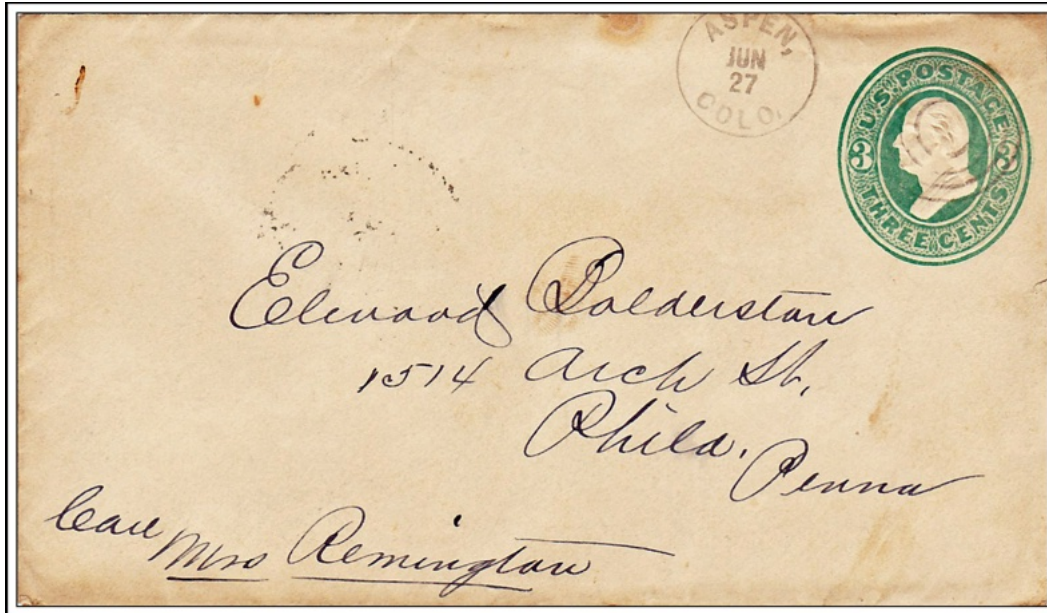 ASPEN,
JUN
27
COLO.
U.S. POSTAGE
3 3
THREE CENTS
Elwood Balderston
1514 Arch St,
Phila. Penna
Care Mrs Remington